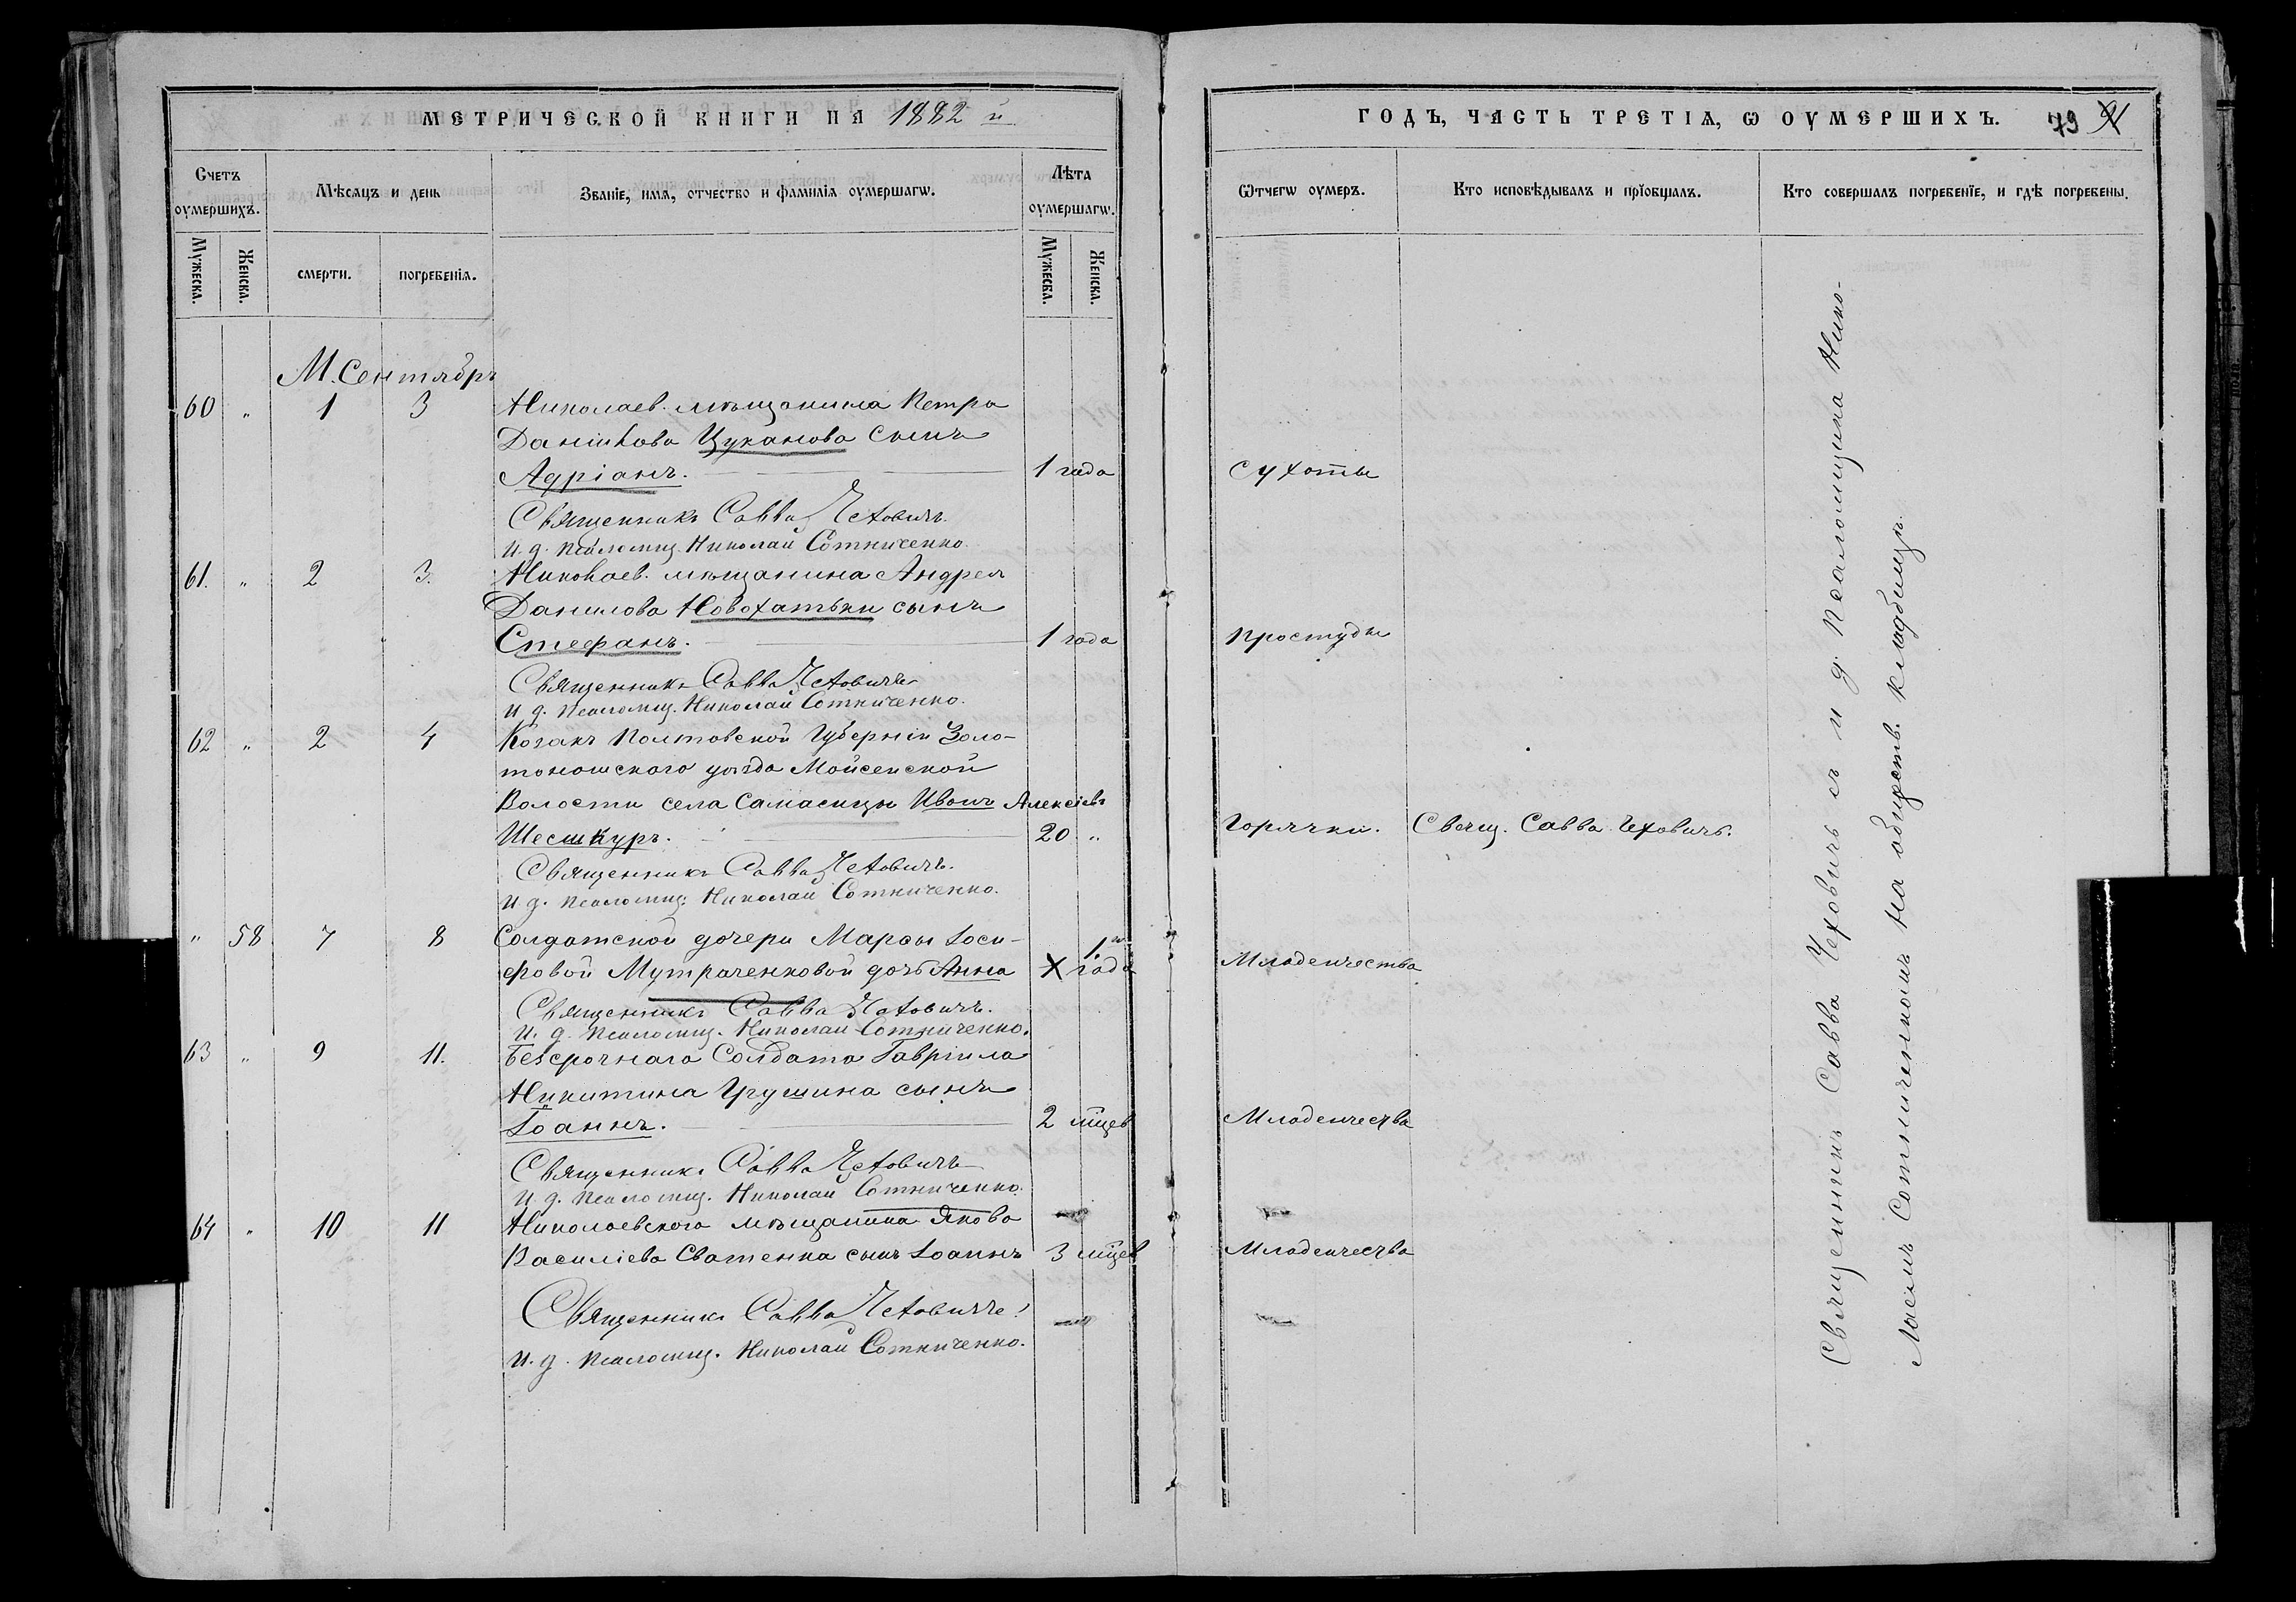 МЕТРИЧЕСКОЙ КНИГИ НА 1882 й
Счетъ оумершихъ.
Мѣсяцъ и день
Званіе, имя, отчество и фамилія оумершагѡ.
Лѣта оумершагѡ.
Мужеска.
Женска.
смерти.
погребенія.
Мужеска.
Женска.
М. Сентябрь
60 " 1 3 Николаев. мѣщанина Петра
Данилова Цуканова сынъ
Адріанъ. 1 года
Священникъ Савва Чеховичъ.
И. д. Псаломщ. Николай Сотниченко.
61. " 2 3. Николаев. мѣщанина Андрея
Данилова Новохатьки сынъ
Стефанъ. 1 года
Священникъ Савва Чеховичъ
И д. Псаломщ. Николай Сотниченко.
62 " 2 4 Козакъ Полтовской Губерніи Золо-
тоношского уѣзда Мойсенской
Волости села Самасицы Иванъ Алексіевъ
Шесшкуръ. 20 "
Священникъ Савва Чеховичъ.
И д. Псаломщ. Николай Сотниченко.
" 58 7 8 Солдатской дочери Марѳы Іоси-
фовой Мутраченковой дочь Анна 1 года
Священникъ Савва Чеховичъ.
И. д. Псаломщ. Николай Сотниченко.
63 " 9 11. Безсрочнаго Солдата Гавріила
Никитина Грушина сынъ
Іоаннъ. 2 мцев
Священникъ Савва Чеховичъ
И. д. Псаломщ. Николай Сотниченко.
64 " 10 11 Николаевского мѣщанина Якова
Василіева Сватенка сынъ Іоаннъ 3 мцев
Священникъ Савва Чеховичъ
И. д. Псаломщ. Николай Сотниченко.
ГОДЪ, ЧАСТЬ ТРЕТІЯ, Ѡ ОУМЕРШИХЪ. 79
Ѿчегѡ оумеръ.
Кто исповѣдывалъ и прїобщалъ.
Кто совершалъ погребенїе, и гдѣ погребены.
Сухоты
Простуды
Горячки. Свящ. Савва Чеховичъ.
Младенчества
Младенчества
Младенчества
Священникъ Савва Чеховичъ съ и д. Псаломщика Нико-
лаемъ Сотниченкомъ на обществ. кладбищѣ.